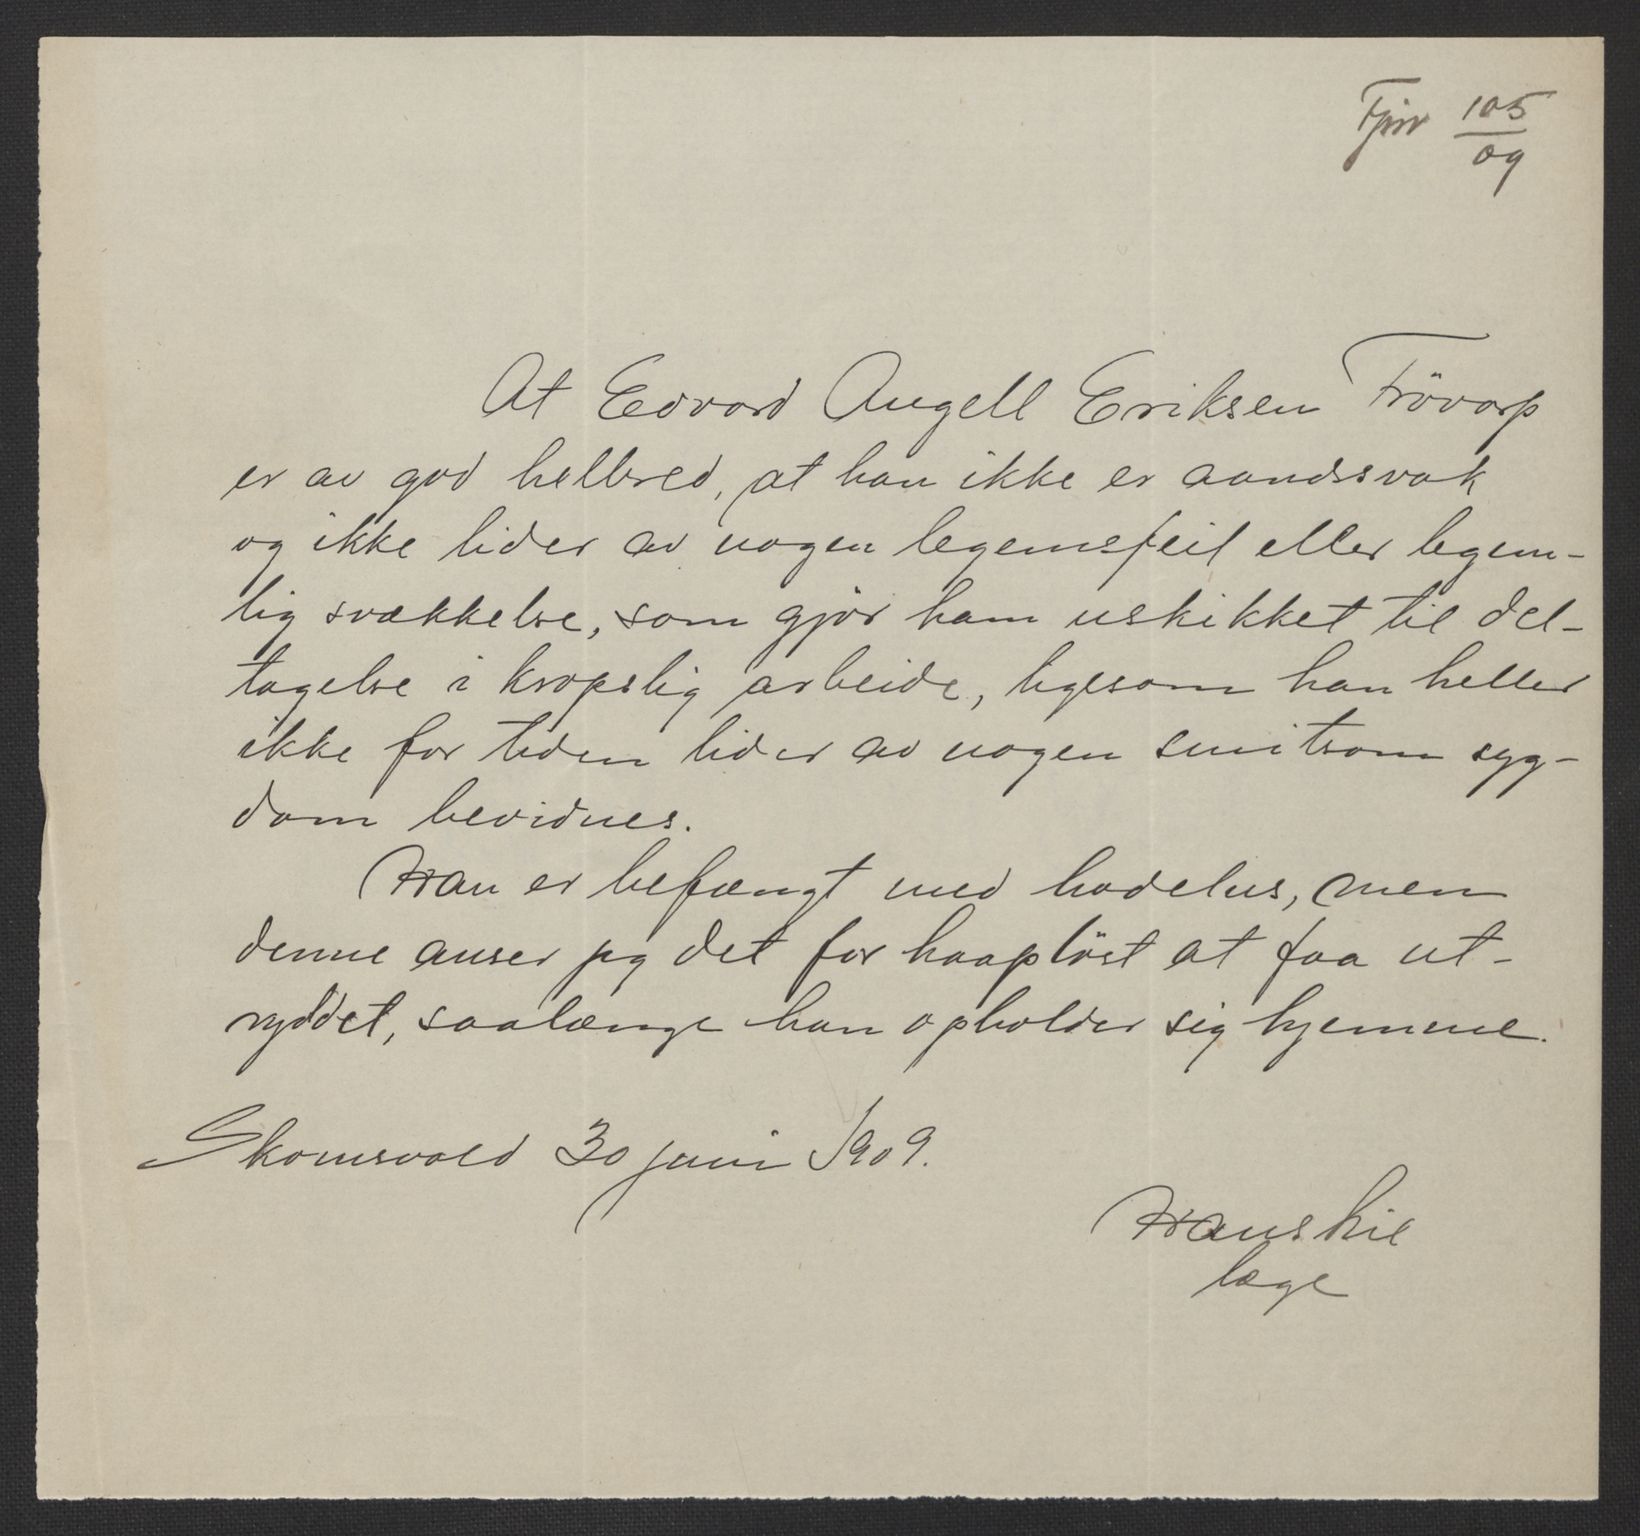 105
09
At Edvard Angell Eriksen Frövarp
er av god helbred, at han ikke er aandssvak
og ikke lider av nogen legemsfeil eller legem-
lig svækkelse, som gjör ham uskikket til del-
tagelse i kropslig arbeide, ligesom han heller
ikke for tiden lider av nogen smitsom syg-
dom bevidnes.
Han er befængt med hodelus, men
denne anser jeg det for haaplöst at faa ut-
ryddet, saalænge han opholder sig hjemme.
30 juni 1909.
læge